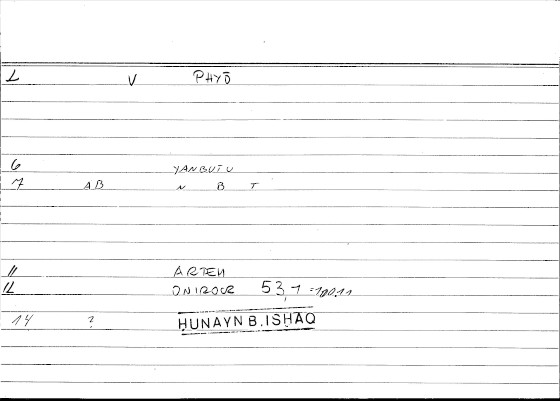 1 V PHYŌ
6 YANBUTU
7 AB N B T
11 ARTEM
12 ONIROCR 53,1 =100.11
14 ? ḤUNAYN B.ISḤAQ